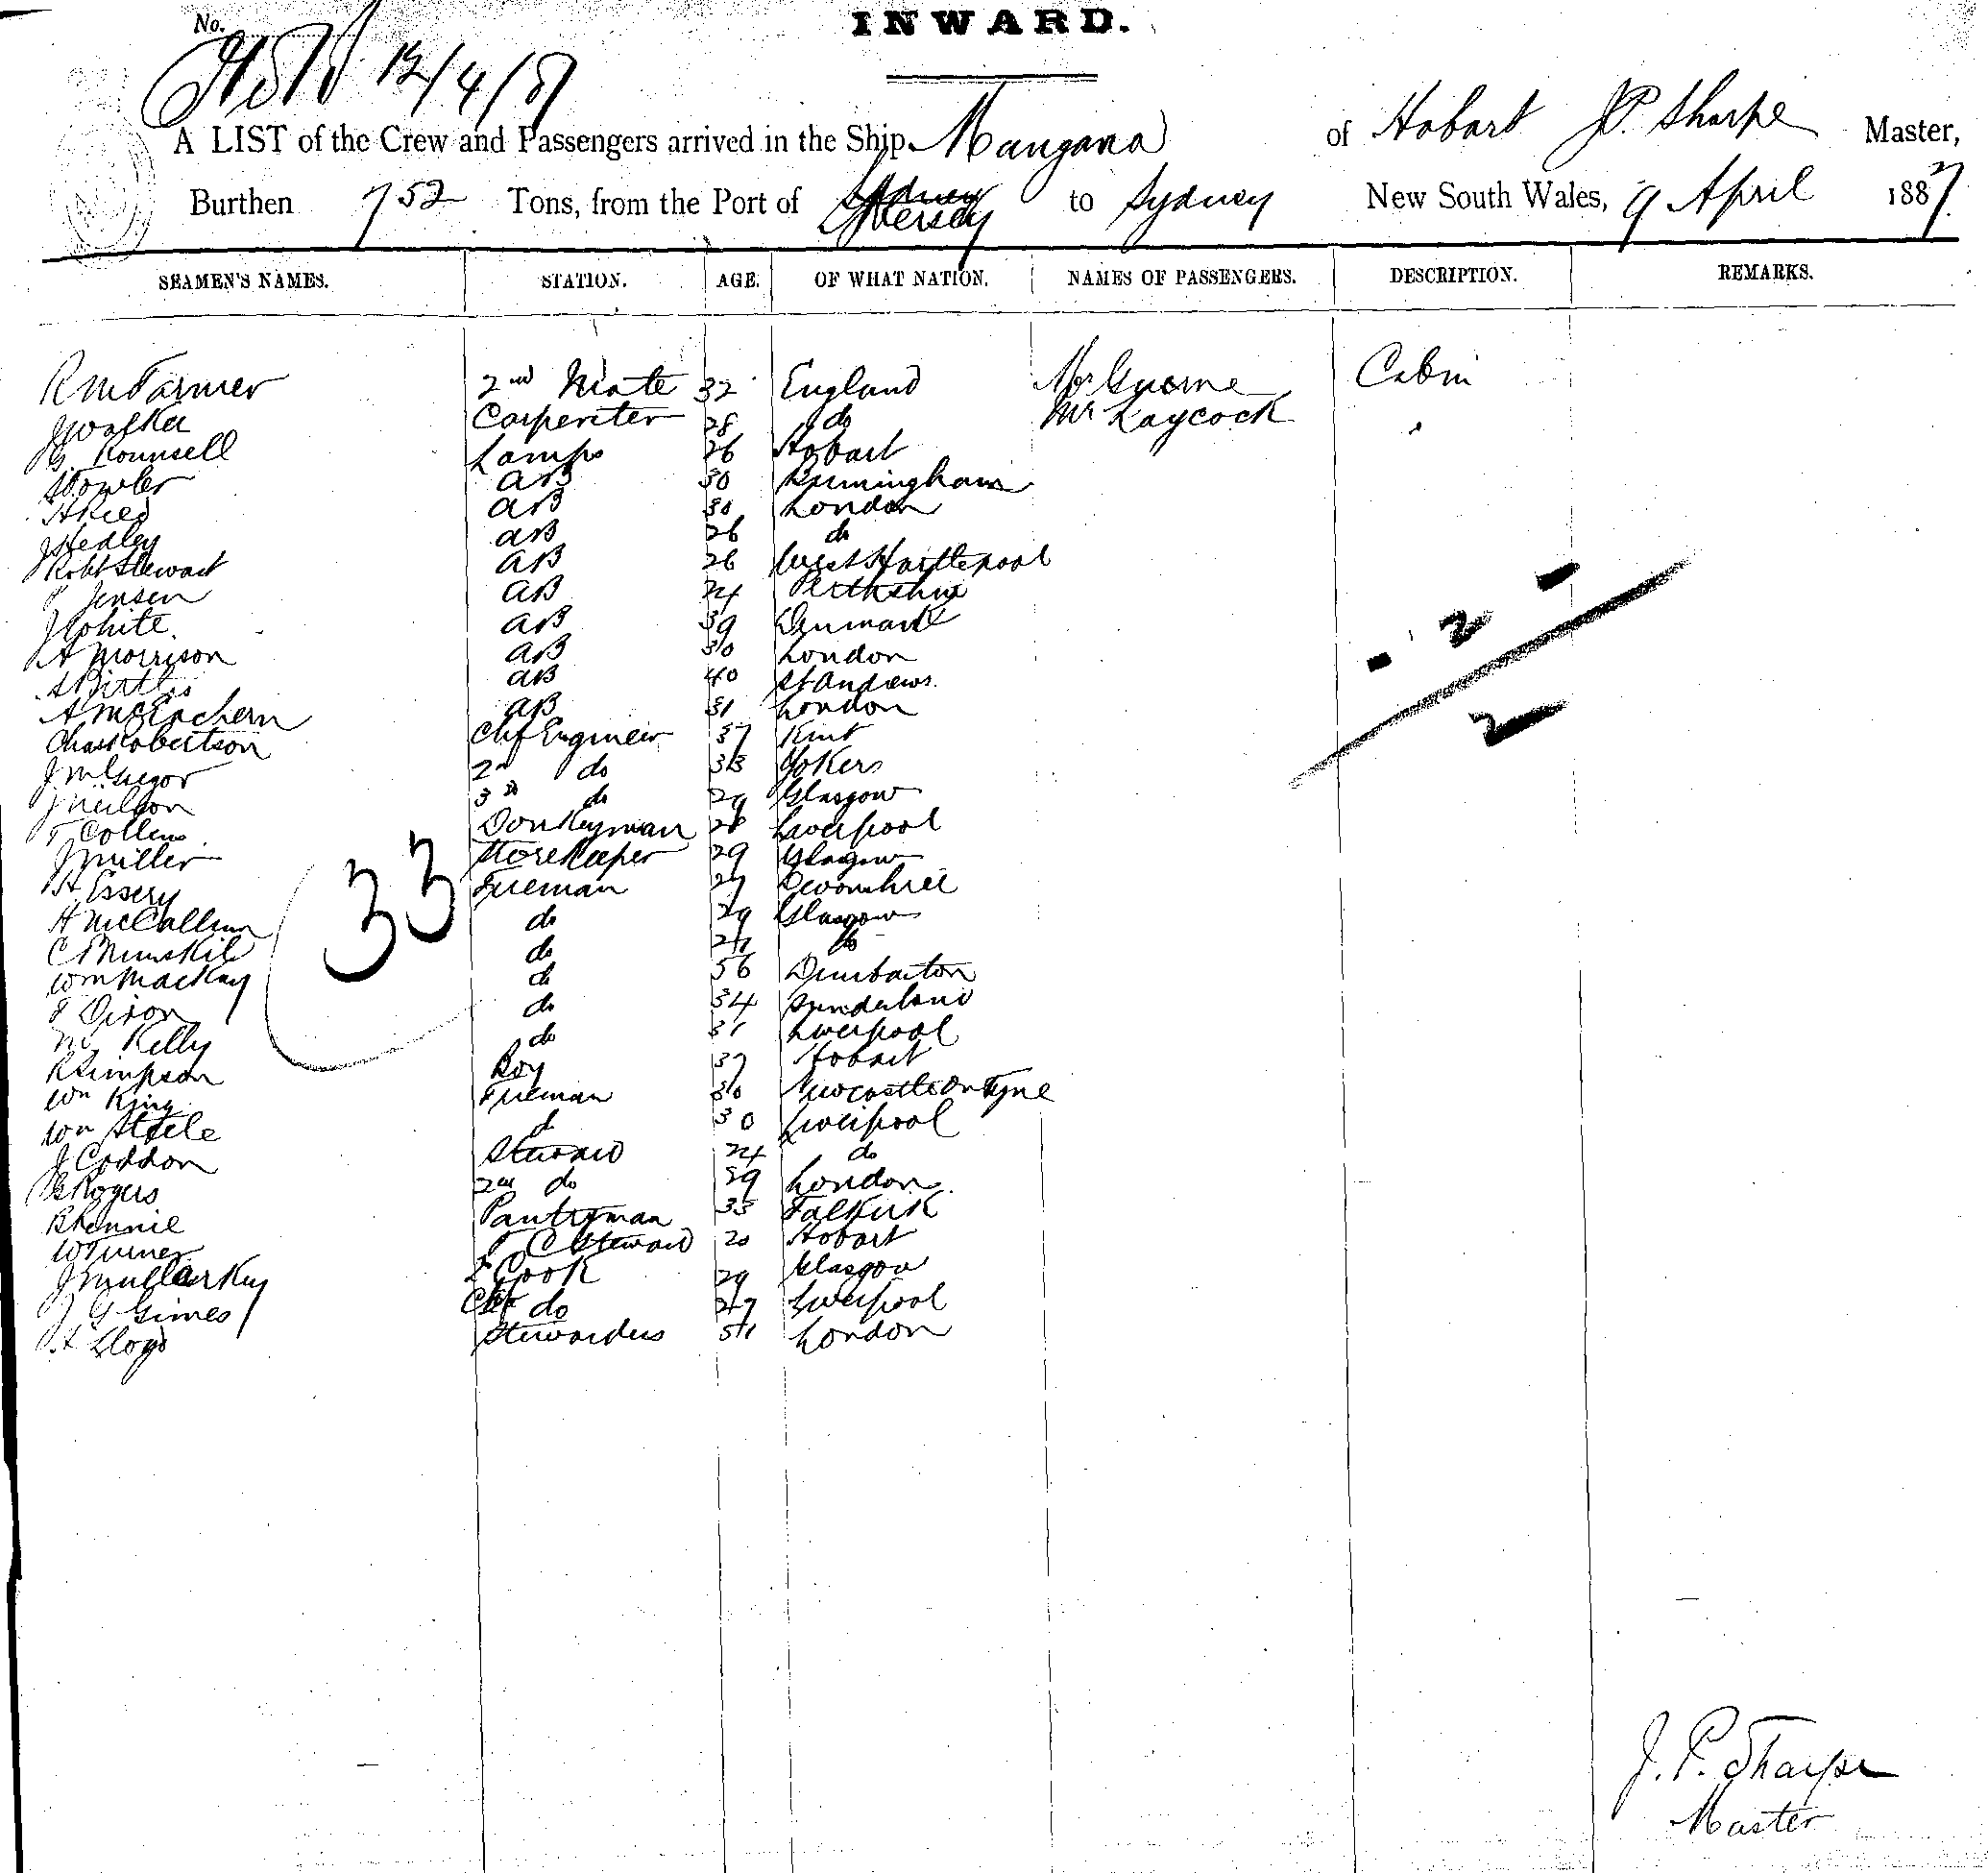 No.
INWARD.
12/4/87
A LIST of the Crew and Passengers arrived in the Ship Mangana of Hobart J.P. Sharpe Master,
Burthen 752 Tons, from the Port of Mersey to Sydney New South Wales, 9 April 1887.
SEAMEN'S NAMES. STATION. AGE. OF WHAT NATION. NAMES OF PASSENGERS. DESCRIPTION. REMARKS.
R M Farmer 2nd Mate 32 England Cabin
J Walker Carpenter 28 do Mr Laycock
G Kounsell Lamps 26 Hobart
Fowler AB 30 Birmingham
H Reed AB 30 London
J Hedley AB 26 do
Robt Stewart AB 26 West Hartlepool
P Jensen AB 24 Perthshire
J White. AB 39 Denmark
A Morrison AB 30 London
S Birtles AB 40 St Andrews.
A McEachern AB 31 London
Chas Robertson Chf Engineer 37 Kent
J McGregor 2nd do 33 Yokers
J Neilson 3rd do 29 Glasgow
T Collins Donkeyman 28 Liverpool
J Miller Storekeeper 29 Glasgow
H Essery Fireman 27 Devonshire
A McCallum do 29 Glasgow
33
C Munskil do do
Wm Mackay do 56 Dumbarton
T Dixon do 34 Sunderland
M Kelly do 31 Liverpool
R Simpson Boy 37 Hobart
Wm King Fireman 30 Newcastle on Tyne
Wm Steele d 30 Liverpool
J Coddon Steward 24 do
G Rogers 2nd do 39 London.
B Rennie Pantryman 35 Falkirk
W Turner F C Steward 20 Hobart
J Mullarkey 2 Cook 29 Glasgow
J G Gimes Chf do 27 Liverpool
A Lloyd Stewardess 51 London
- 2 -
2
J. P. Sharpe
Master